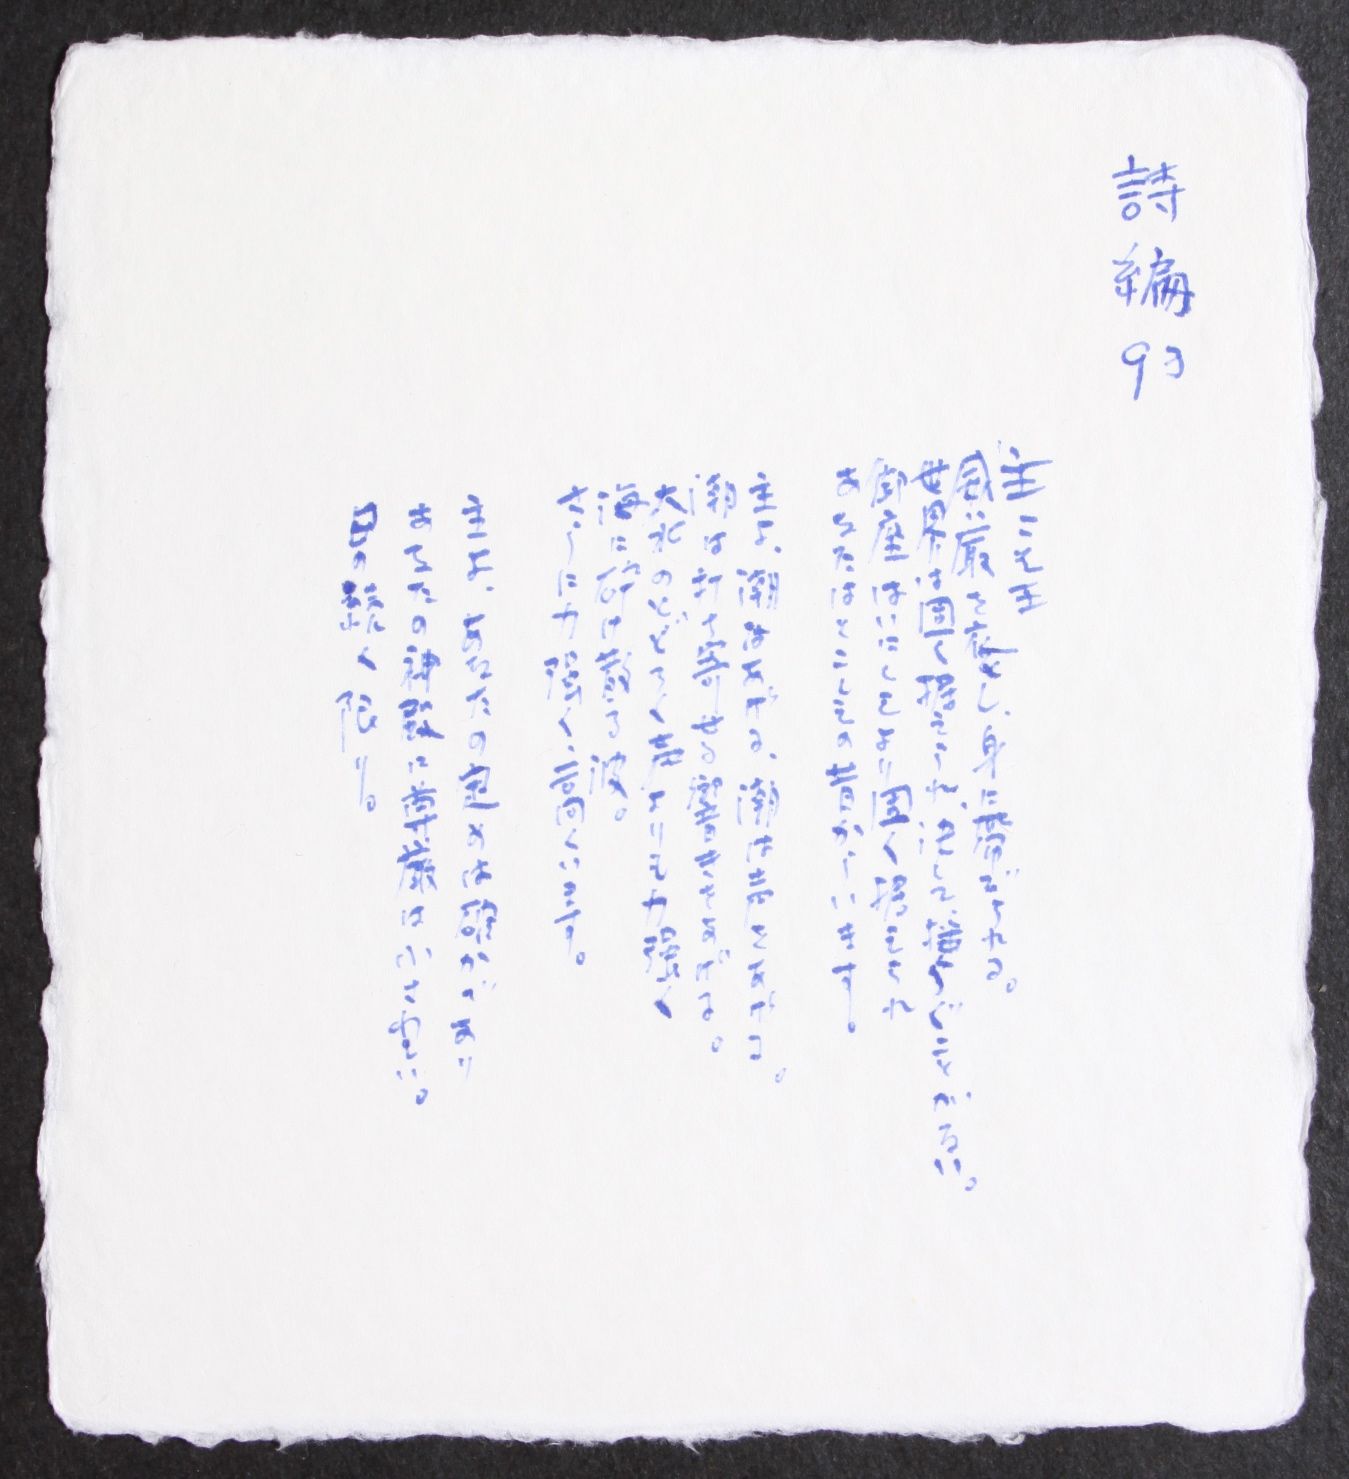 詩編93
主こそ王
威厳を衣とし、身に帯びられる。
世界は固く据えられ、決して揺らぐことがない。
御座はいにしえより固く据えられ
あなたはとこしえの昔からいます。
主よ、潮はあげる、潮は声をあげる。
潮は打ち寄せる響きをあげる。
大水のとどろく声よりも力強く
海に砕け散る波。
さらに力強く、高くいます。
主よ、あなたの定めは確かであり
あなたの神殿に尊厳はふさわしい。
日の続く限り。